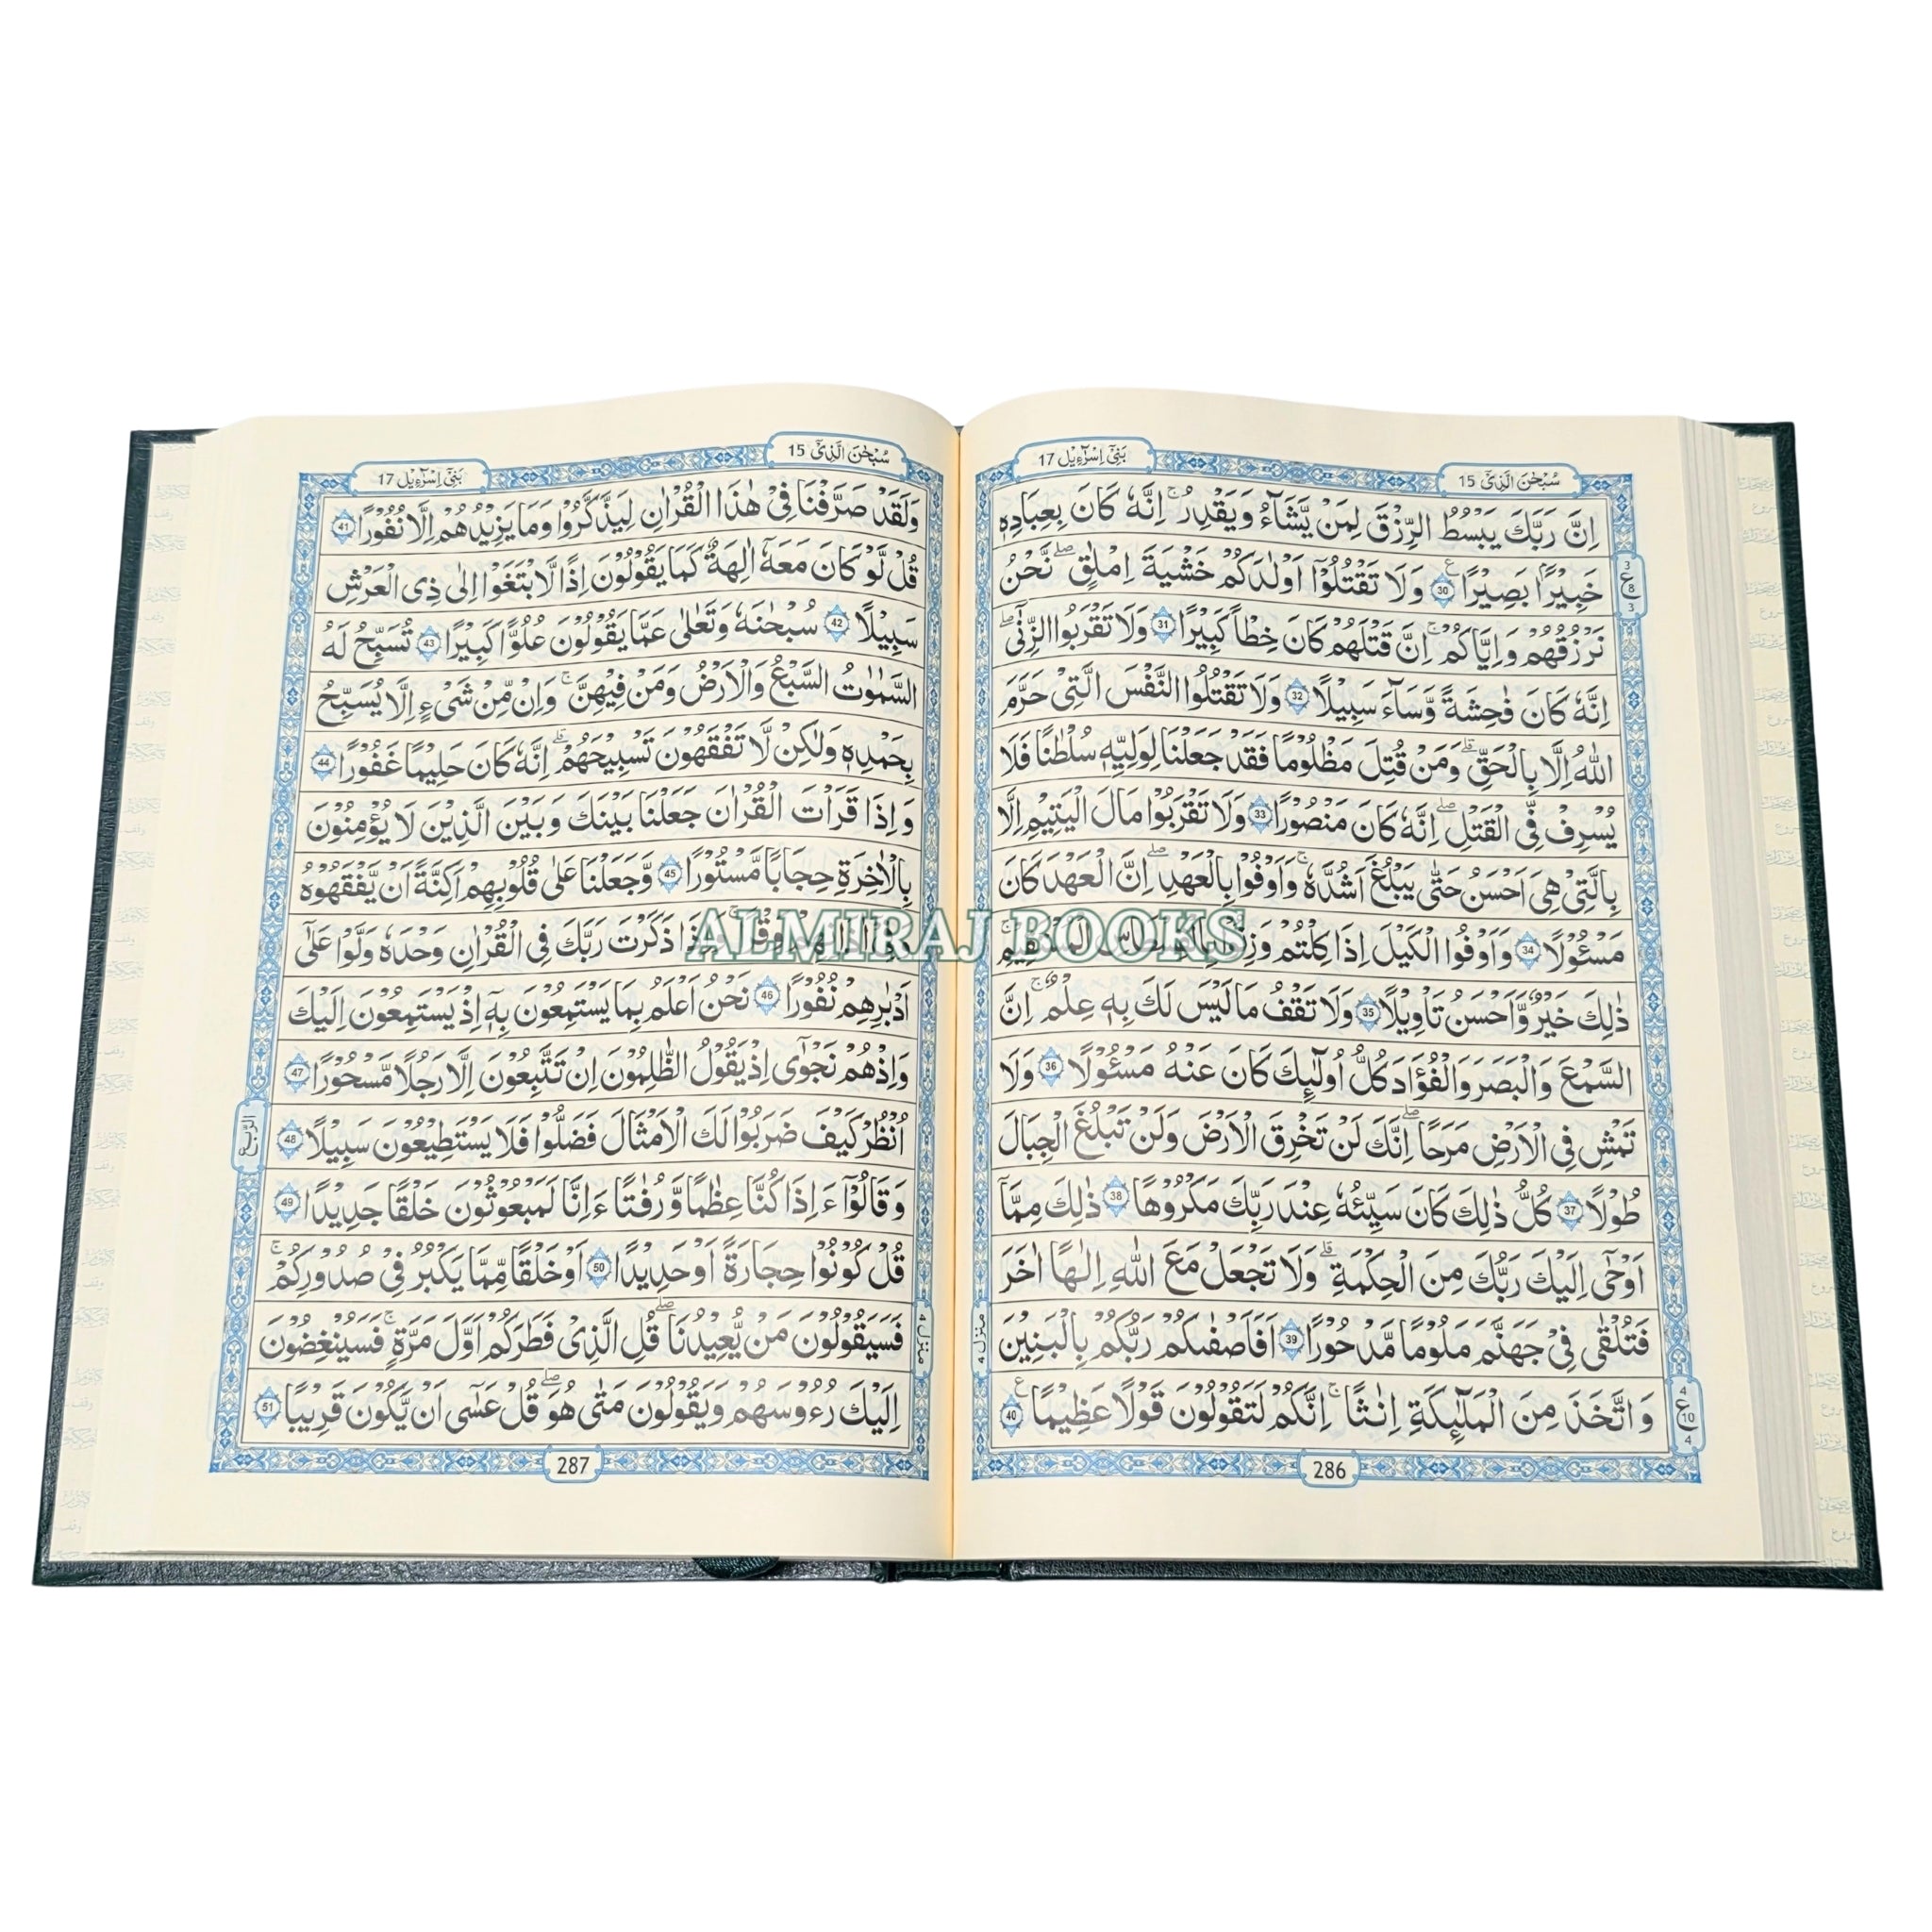 سُبْحٰنَ الَّذِيْٓ 15
بَنِيْٓ اِسْرَآءِيْل 17
اِنَّ رَبَّكَ يَبْسُطُ الرِّزْقَ لِمَنْ يَّشَآءُ وَيَقْدِرُ ۚ اِنَّهٗ كَانَ بِعِبَادِهٖ
خَبِيْرًۢا بَصِيْرًا 30 ع وَلَا تَقْتُلُوْٓا اَوْلَادَكُمْ خَشْيَةَ اِمْلَاقٍ ۖ نَّحْنُ
نَرْزُقُهُمْ وَاِيَّاكُمْ ۚ اِنَّ قَتْلَهُمْ كَانَ خِطْاً كَبِيْرًا 31 وَلَا تَقْرَبُوا الزِّنٰٓى ۖ
اِنَّهٗ كَانَ فٰحِشَةً وَّسَآءَ سَبِيْلًا 32 وَلَا تَقْتُلُوا النَّفْسَ الَّتِيْ حَرَّمَ
اللّٰهُ اِلَّا بِالْحَقِّ ۗ وَمَنْ قُتِلَ مَظْلُوْمًا فَقَدْ جَعَلْنَا لِوَلِيِّهٖ سُلْطٰنًا فَلَا
يُسْرِفْ فِّي الْقَتْلِ ۖ اِنَّهٗ كَانَ مَنْصُوْرًا 33 وَلَا تَقْرَبُوْا مَالَ الْيَتِيْمِ اِلَّا
بِالَّتِيْ هِيَ اَحْسَنُ حَتّٰى يَبْلُغَ اَشُدَّهٗ ۚ وَاَوْفُوْا بِالْعَهْدِ ۖ اِنَّ الْعَهْدَ كَانَ
مَسْـُٔوْلًا 34 وَاَوْفُوا الْكَيْلَ اِذَا كِلْتُمْ
ذٰلِكَ خَيْرٌ وَّاَحْسَنُ تَاْوِيْلًا 35 وَلَا تَقْفُ مَا لَيْسَ لَكَ بِهٖ عِلْمٌ ۚ اِنَّ
السَّمْعَ وَالْبَصَرَ وَالْفُؤَادَ كُلُّ اُولٰٓئِكَ كَانَ عَنْهُ مَسْـُٔوْلًا 36 وَلَا
تَمْشِ فِي الْاَرْضِ مَرَحًا ۖ اِنَّكَ لَنْ تَخْرِقَ الْاَرْضَ وَلَنْ تَبْلُغَ الْجِبَالَ
طُوْلًا 37 كُلُّ ذٰلِكَ كَانَ سَيِّئُهٗ عِنْدَ رَبِّكَ مَكْرُوْهًا 38 ذٰلِكَ مِمَّآ
اَوْحٰٓى اِلَيْكَ رَبُّكَ مِنَ الْحِكْمَةِ ۗ وَلَا تَجْعَلْ مَعَ اللّٰهِ اِلٰهًا اٰخَرَ
فَتُلْقٰى فِيْ جَهَنَّمَ مَلُوْمًا مَّدْحُوْرًا 39 اَفَاَصْفٰىكُمْ رَبُّكُمْ بِالْبَنِيْنَ
وَاتَّخَذَ مِنَ الْمَلٰٓئِكَةِ اِنٰثًا ۚ اِنَّكُمْ لَتَقُوْلُوْنَ قَوْلًا عَظِيْمًا 40 ع
3 ع 8 3
4 ع 10 4
منزل 4
286
سُبْحٰنَ الَّذِيْٓ 15
بَنِيْٓ اِسْرَآءِيْل 17
وَلَقَدْ صَرَّفْنَا فِيْ هٰذَا الْقُرْاٰنِ لِيَذَّكَّرُوْا وَمَا يَزِيْدُهُمْ اِلَّا نُفُوْرًا 41
قُلْ لَّوْ كَانَ مَعَهٗٓ اٰلِهَةٌ كَمَا يَقُوْلُوْنَ اِذًا لَّابْتَغَوْا اِلٰى ذِي الْعَرْشِ
سَبِيْلًا 42 سُبْحٰنَهٗ وَتَعٰلٰى عَمَّا يَقُوْلُوْنَ عُلُوًّا كَبِيْرًا 43 تُسَبِّحُ لَهُ
السَّمٰوٰتُ السَّبْعُ وَالْاَرْضُ وَمَنْ فِيْهِنَّ ۚ وَاِنْ مِّنْ شَيْءٍ اِلَّا يُسَبِّحُ
بِحَمْدِهٖ وَلٰكِنْ لَّا تَفْقَهُوْنَ تَسْبِيْحَهُمْ ۗ اِنَّهٗ كَانَ حَلِيْمًا غَفُوْرًا 44
وَاِذَا قَرَاْتَ الْقُرْاٰنَ جَعَلْنَا بَيْنَكَ وَبَيْنَ الَّذِيْنَ لَا يُؤْمِنُوْنَ
بِالْاٰخِرَةِ حِجَابًا مَّسْتُوْرًا 45 وَّجَعَلْنَا عَلٰى قُلُوْبِهِمْ اَكِنَّةً اَنْ يَّفْقَهُوْهُ
ذَكَرْتَ رَبَّكَ فِي الْقُرْاٰنِ وَحْدَهٗ وَلَّوْا عَلٰٓى
اَدْبٰرِهِمْ نُفُوْرًا 46 نَحْنُ اَعْلَمُ بِمَا يَسْتَمِعُوْنَ بِهٖٓ اِذْ يَسْتَمِعُوْنَ اِلَيْكَ
وَاِذْ هُمْ نَجْوٰٓى اِذْ يَقُوْلُ الظّٰلِمُوْنَ اِنْ تَتَّبِعُوْنَ اِلَّا رَجُلًا مَّسْحُوْرًا 47
اُنْظُرْ كَيْفَ ضَرَبُوْا لَكَ الْاَمْثَالَ فَضَلُّوْا فَلَا يَسْتَطِيْعُوْنَ سَبِيْلًا 48
وَقَالُوْٓا ءَاِذَا كُنَّا عِظٰمًا وَّرُفٰتًا ءَاِنَّا لَمَبْعُوْثُوْنَ خَلْقًا جَدِيْدًا 49
قُلْ كُوْنُوْا حِجَارَةً اَوْ حَدِيْدًا 50 اَوْ خَلْقًا مِّمَّا يَكْبُرُ فِيْ صُدُوْرِكُمْ ۚ
فَسَيَقُوْلُوْنَ مَنْ يُّعِيْدُنَا ۖ قُلِ الَّذِيْ فَطَرَكُمْ اَوَّلَ مَرَّةٍ ۚ فَسَيُنْغِضُوْنَ
اِلَيْكَ رُءُوْسَهُمْ وَيَقُوْلُوْنَ مَتٰى هُوَ ۖ قُلْ عَسٰٓى اَنْ يَّكُوْنَ قَرِيْبًا 51
الرّبع
منزل 4
287
ALMIRAJ BOOKS